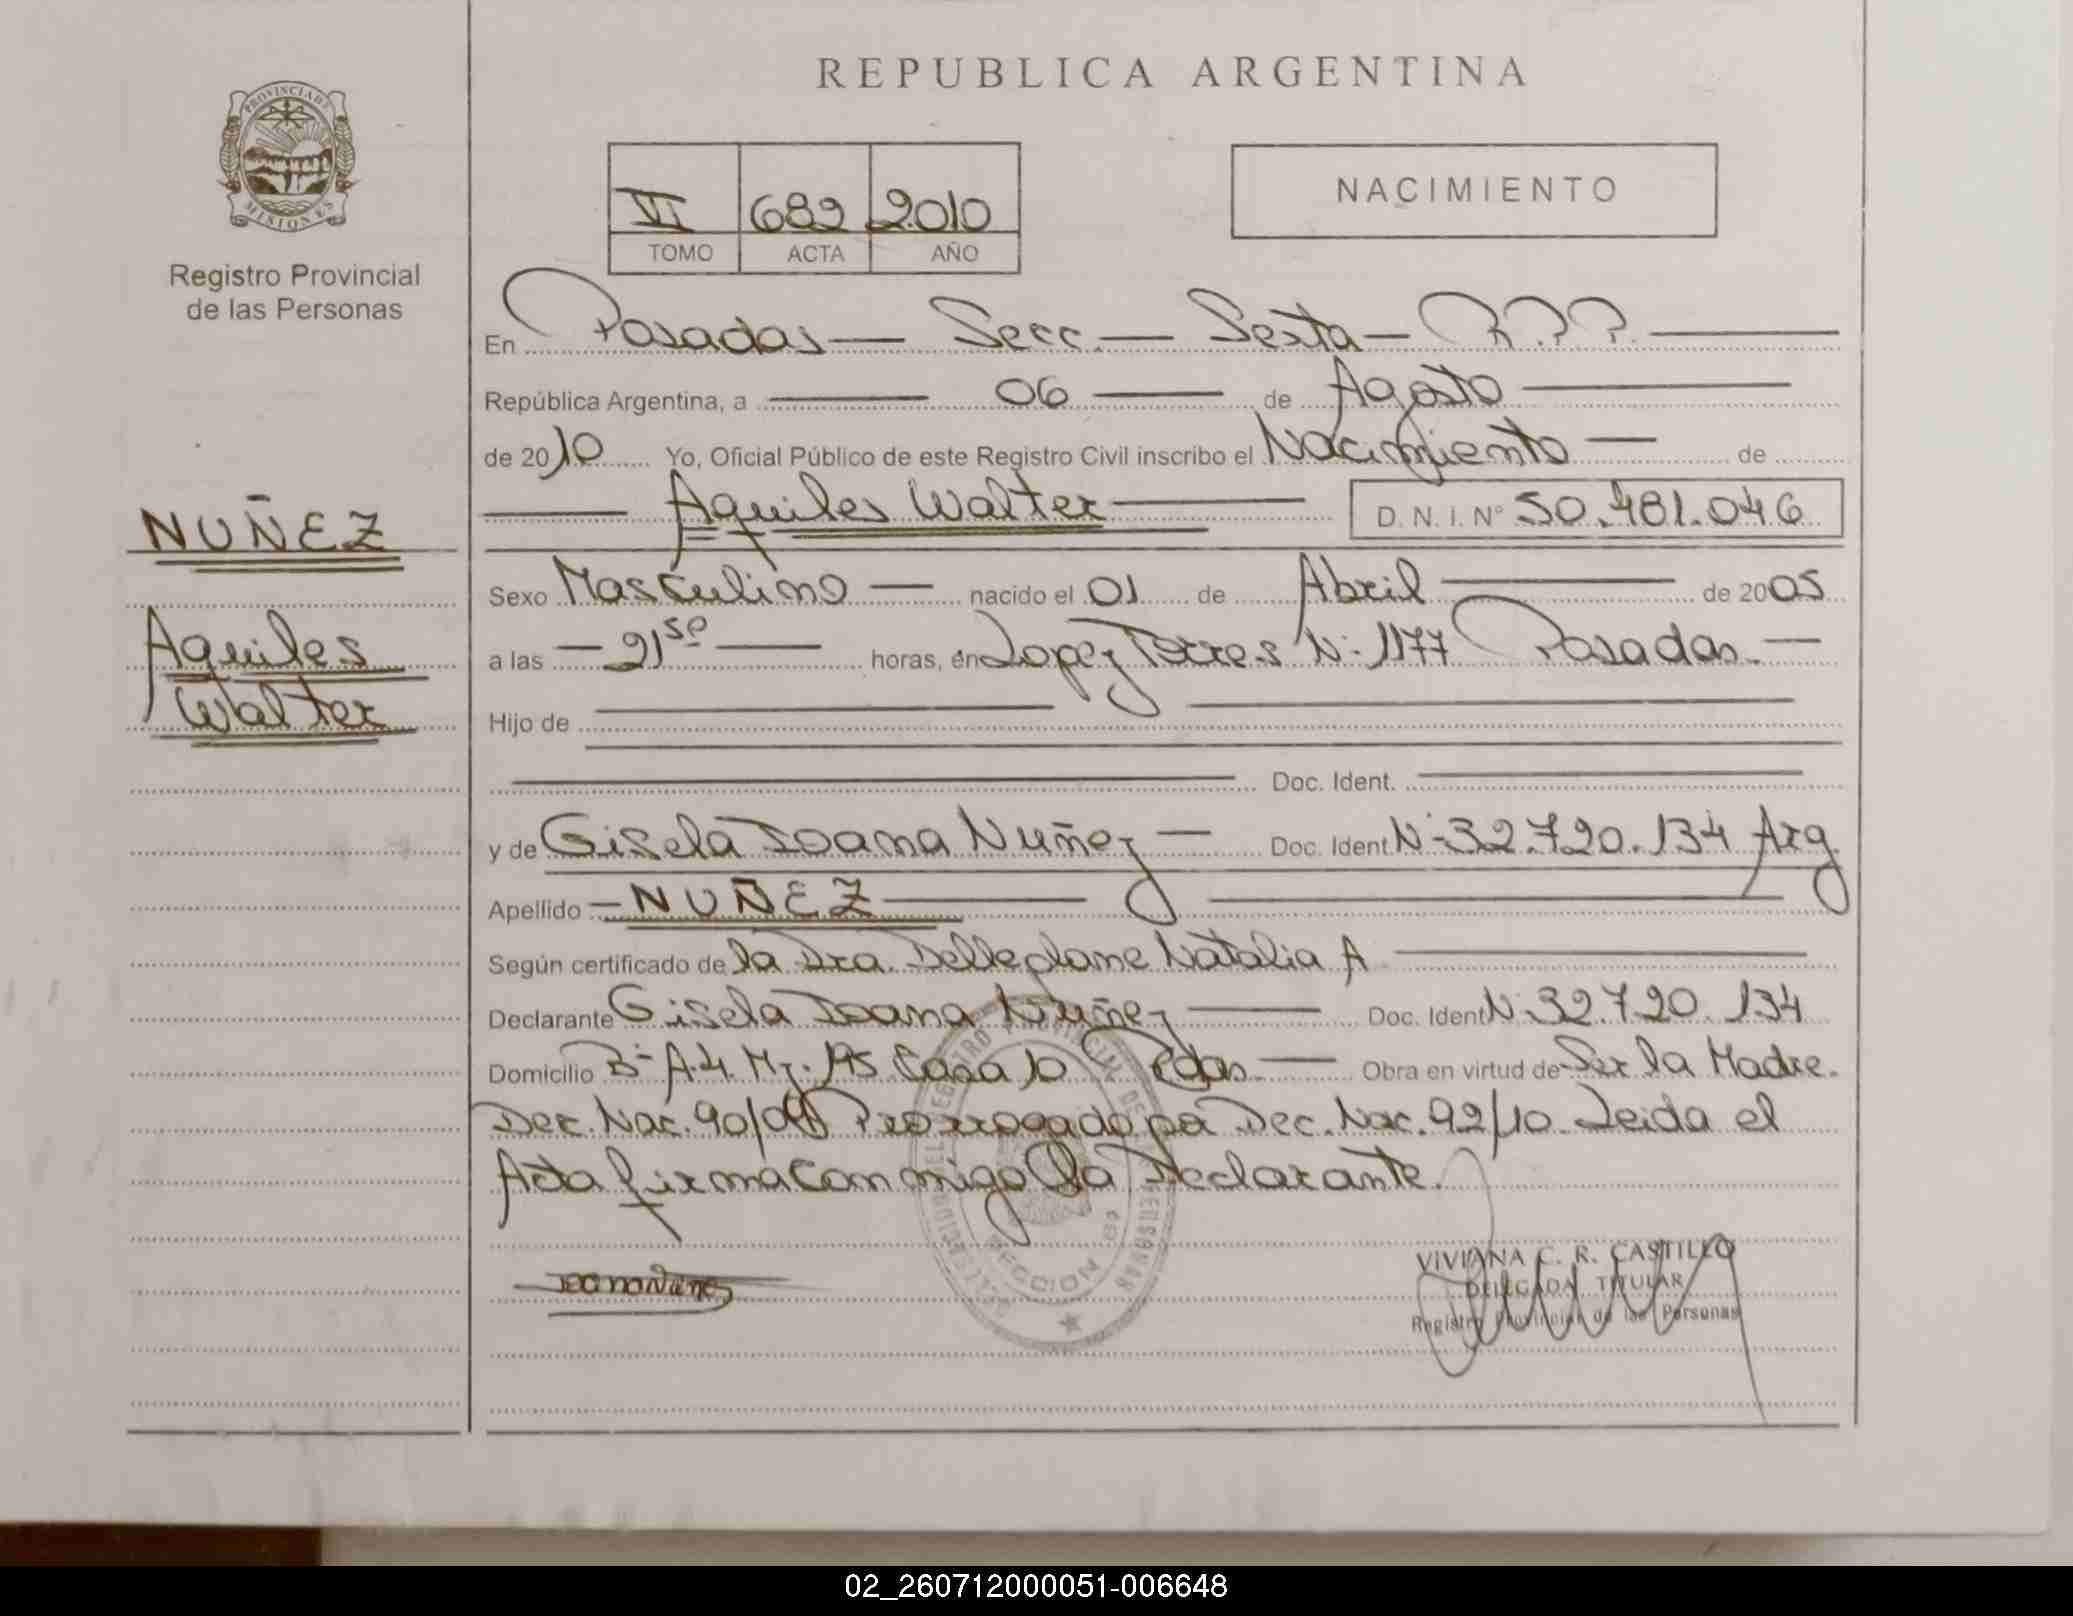 REPUBLICA ARGENTINA
PROVINCIA DE MISIONES
Registro Provincial
de las Personas
VI 682 2010
TOMO ACTA AÑO
NACIMIENTO
En Posadas — Secc. — Sexta — R.P.P.
República Argentina, a 06 de Agosto
de 2010 Yo, Oficial Público de este Registro Civil inscribo el Nacimiento — de
Aquiles Walter D. N. I. N° 50.481.046
NUÑEZ
Aquiles
Walter
Sexo Masculino — nacido el 01 de Abril de 2005
a las — 21 — horas, en Lopez Torres N: 1177 Posadas. —
Hijo de
Doc. Ident.
y de Gisela Ioana Nuñez — Doc. Ident. N: 32.720.134 Arg
Apellido — NUÑEZ
Según certificado de la Dra. Delleplane Natalia A
Declarante Gisela Ioana Nuñez — Doc. Ident N: 32.720.134
Domicilio B° A.4. Mz. 195 Casa 10 Pdas. — Obra en virtud de Ser la Madre.
Dec. Nac. 90/09 Prorrogado por Dec. Nac. 92/10. Leida el
Acta firma conmigo la Declarante.
VIVIANA C. R. CASTILLO
DELEGADA TITULAR
Registro Provincial de las Personas
SECCION
02_260712000051-006648